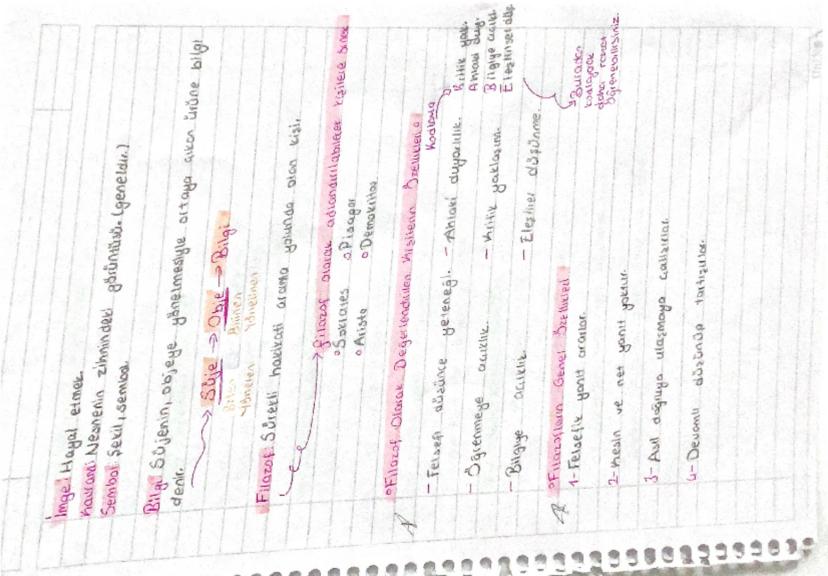 İmge: Hayal etmek.
Kavram: Nesnenin zihnindeki görüntüsü. (geneldir.)
Sembol: Şekil, sembol.
Bilgi: Süjenin, objeye yönelmesiyle ortaya çıkan ürüne bilgi
denir.
Süje → Obje → Bilgi
Bilen Bilinen
Yönelen Yönelinen
Filozof: Sürekli hakikati arama yolunda olan kişi.
Filozof olarak adlandırılabilecek kişilere örnek
Sokrates Pisagor
Aristo Demokritos
Filozof Olarak Değerlendirilen Kişilerin Özellikleri
- Felsefi düşünce yeteneği. - Ahlaki duyarlılık.
- Öğrenmeye açıklık. - Kritik yaklaşım.
- Bilgiye açıklık. - Eleştirel düşünme.
Kodlama
Kritik yak.
Ahlaki duy.
Bilgiye açıkl.
Eleştirisel düş.
Buradan
kodlayarak
daha rahat
öğrenebilirsiniz.
Filozofların Genel Özellikleri
1- Felsefik yanıt ararlar.
2- Kesin ve net yanıt yoktur.
3- Asıl doğruya ulaşmaya çalışırlar.
4- Devamlı düşünüp tartışırlar.